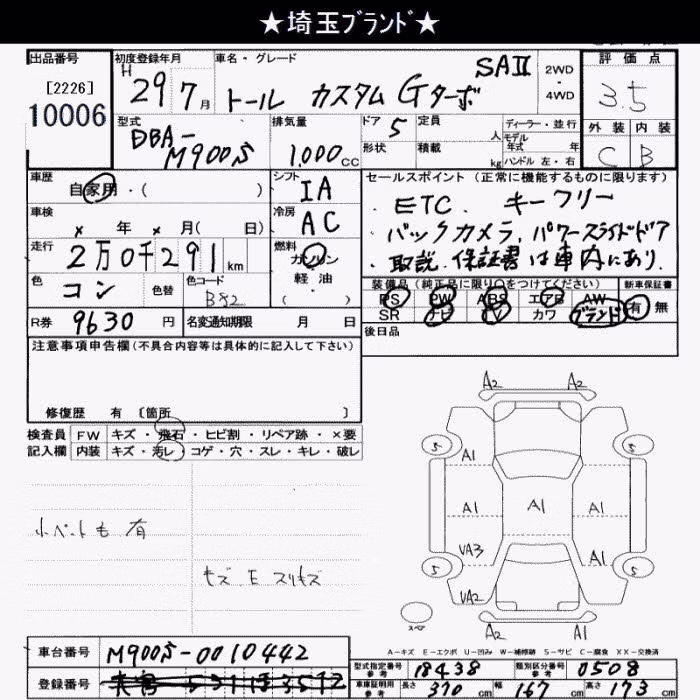 ★埼玉ﾌﾞﾗﾝﾄﾞ★
出品番号
[2226]
10006
初度登録年月
H 29 7 月
車名・グレード
トール カスタム Gターボ SAⅡ
2WD
・
4WD
評価点
3.5
外装 内装
C B
型式
DBA-
M900S
排気量
1,000 cc
ドア 5
形状
定員 人
積載 kg
ディーラー・並行
モデル
年式 年
ハンドル 左・右
車歴
自家用・( )
シフト
IA
車検
× 年 × 月( 日)
冷房
AC
走行
2万0千291 km
燃料
ガソリン
軽・油
( )
色
コン
色替
色コード
B82
R券 9630 円
名変通知期限 月 日
セールスポイント (正常に機能するものに限ります)
・ETC. キーフリー
・バックカメラ. パワースライドドア
・取説. 保証書は車内にあり.
装備品(純正品に限り○をつけてください)
新車保証書
PS PW ABS エアB AW
SR ナビ TV カワ グランド
有 無
後日品
注意事項申告欄(不具合内容等は具体的に記入して下さい)
修復歴 有 〔箇所 〕
検査員
記入欄
FW キズ・飛石・ヒビ割・リペア跡・×要
内装 キズ・汚レ・コゲ・穴・スレ・キレ・破レ
小ペットも 有
キズ E スリキズ
A2 A2
5 5
A1
A1 A1 A1
VA3 A1
5 5
VA2
A2 A1
スペア
A-キズ E-エクボ U-凹み W-補修跡 S-サビ C-腐食 XX-交換済
車台番号 M900S-0010442
登録番号
型式指定番号
参考
18438
類別区分番号
参考
0508
車庫証明用
参考
長さ 370 cm 幅 167 cm 高さ 173 cm